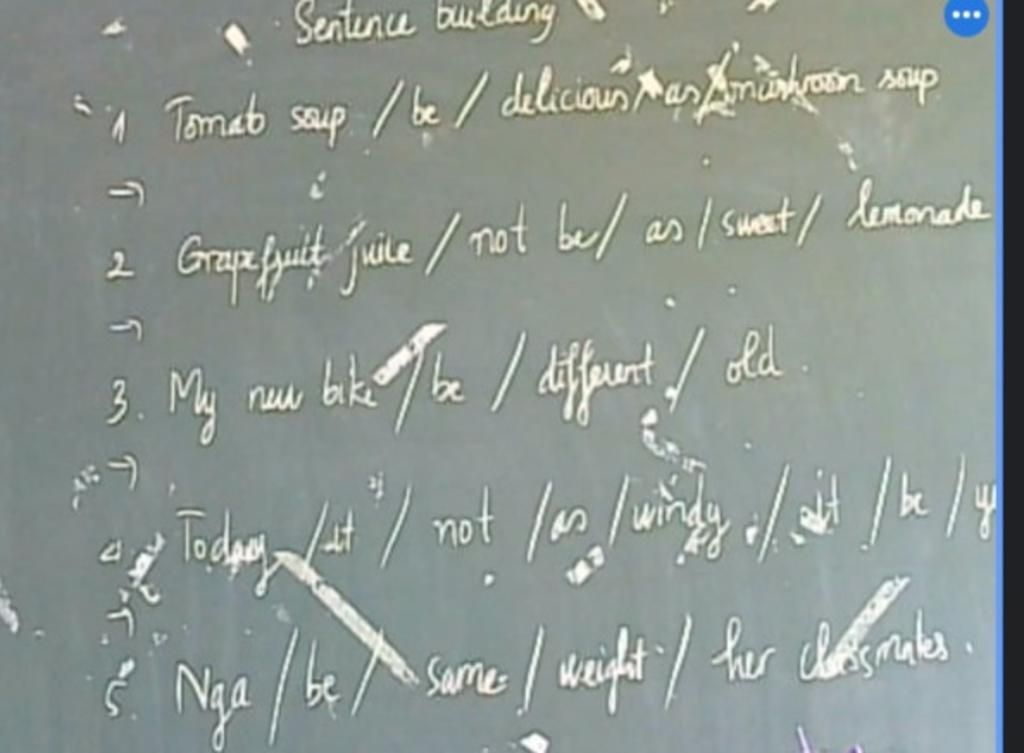 Sentence building
1 Tomato soup / be / delicious / as / mushroom soup
→
2 Grapefruit juice / not be / as / sweet / lemonade
→
3. My new bike / be / different / old.
→
4 Today / it / not / as / windy / it / be / y
→
5. Nga / be / same / weight / her classmates.